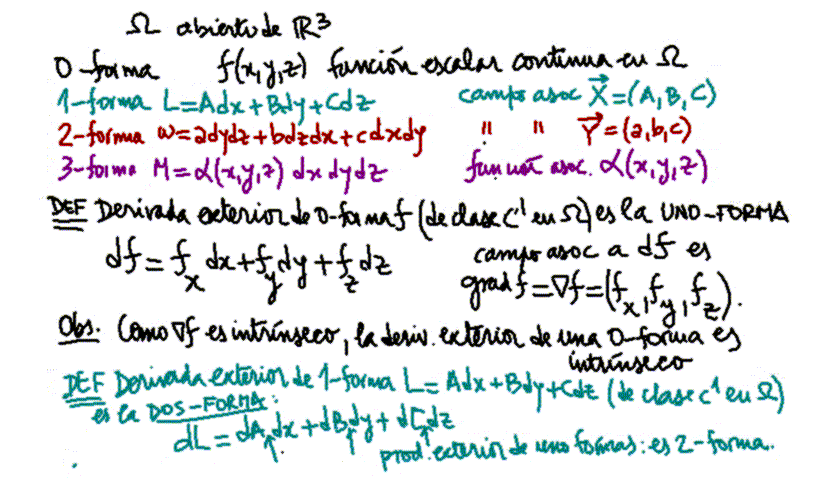 Ω abierto de ℝ³
0-forma f(x,y,z) función escalar continua en Ω
1-forma L=Adx+Bdy+Cdz campo asoc X⃗=(A,B,C)
2-forma ω=adydz+bdzdx+cdxdy " " Y⃗=(a,b,c)
3-forma M=α(x,y,z) dxdydz función asoc. α(x,y,z)
DEF Derivada exterior de 0-forma f (de clase C¹ en Ω) es la UNO-FORMA
df=f_x dx+f_y dy+f_z dz campo asoc a df es
grad f=∇f=(f_x,f_y,f_z).
Obs. Como ∇f es intrínseco, la deriv. exterior de una 0-forma es
intrínseco
DEF Derivada exterior de 1-forma L=Adx+Bdy+Cdz (de clase C¹ en Ω)
es la DOS-FORMA:
dL=dA dx+dB dy+dC dz
↑ ↑ ↑ prod. exterior de uno formas: es 2-forma.